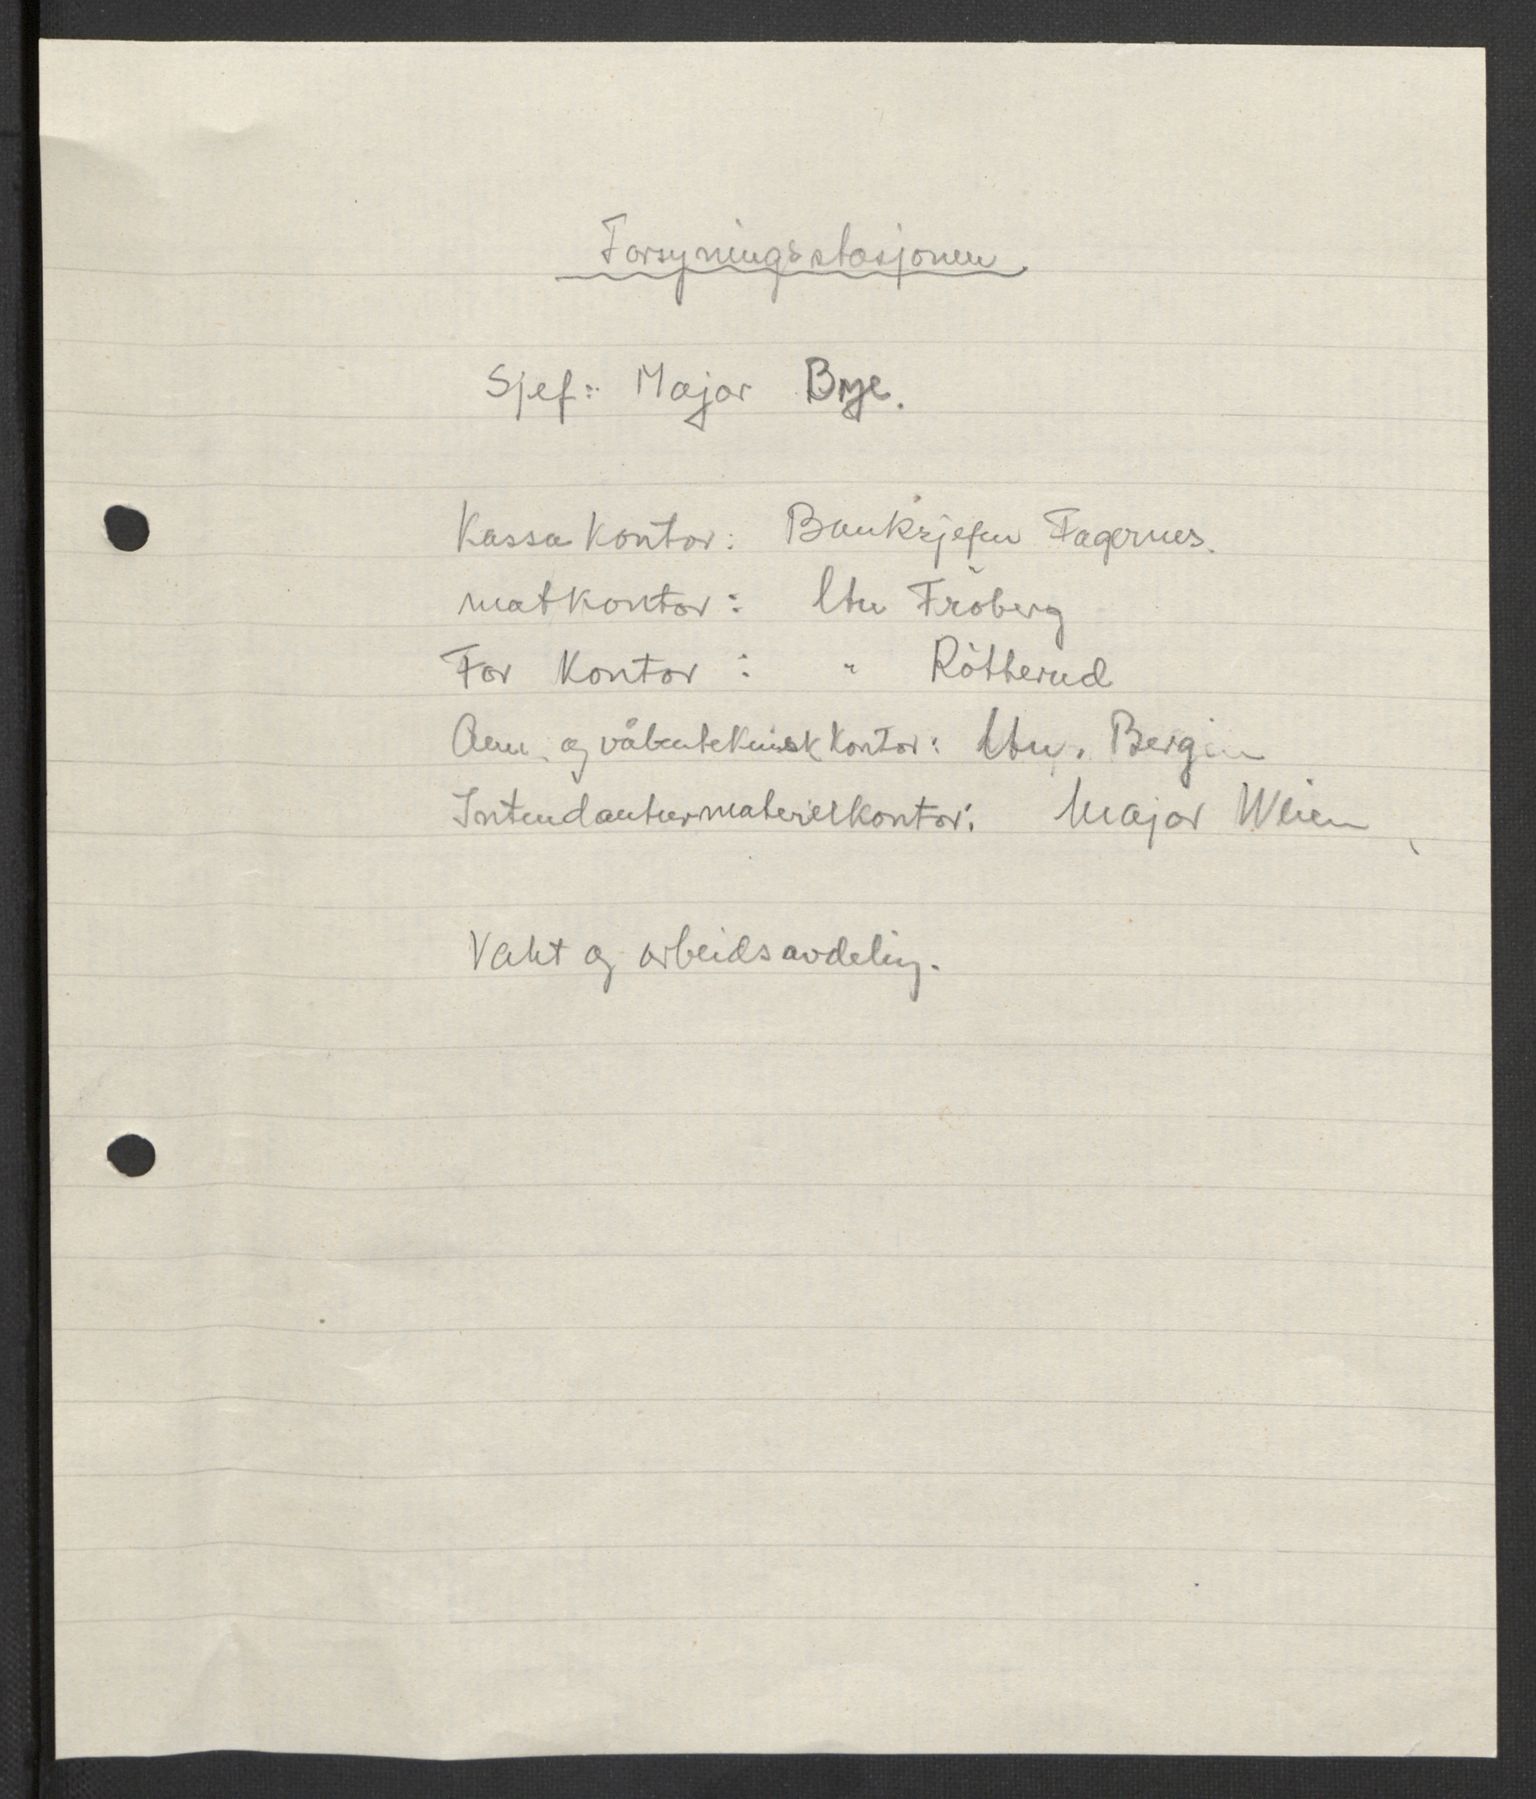 Forsyningsstasjonen
Sjef: Major Bye.
Kassakontor: Banksjefen Fagernes.
matkontor: ltn Fröberg
For Kontor: " Rötterud
Am. og våbenteknisk kontor: ltn. Bergin
Intendanturmaterielkontor: Major Weien
Vakt og arbeidsavdeling.